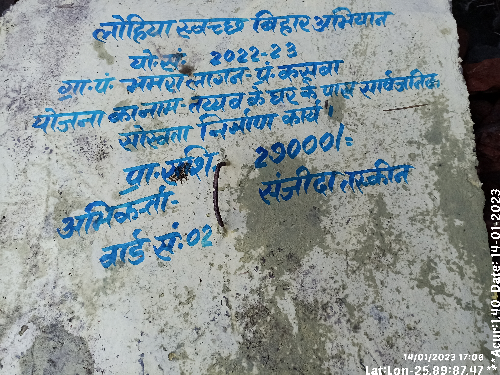 लोहिया स्वच्छ बिहार अभियान
यो. सं. 2022-23
ग्रा. पं- भमरा लागन- प्रं- कसबा
योजना का नाम- तय्यब के घर के पास सार्वजनिक
सोखता निर्माण कार्य।
प्रा. राशि 29000/-
अभिकर्ता- संजीदा तस्कीन
वार्ड सं. 02
14/01/2023 17:08
Lat:Lon-25.89:87.47
**Acur:1.40**Date: 14-01-2023